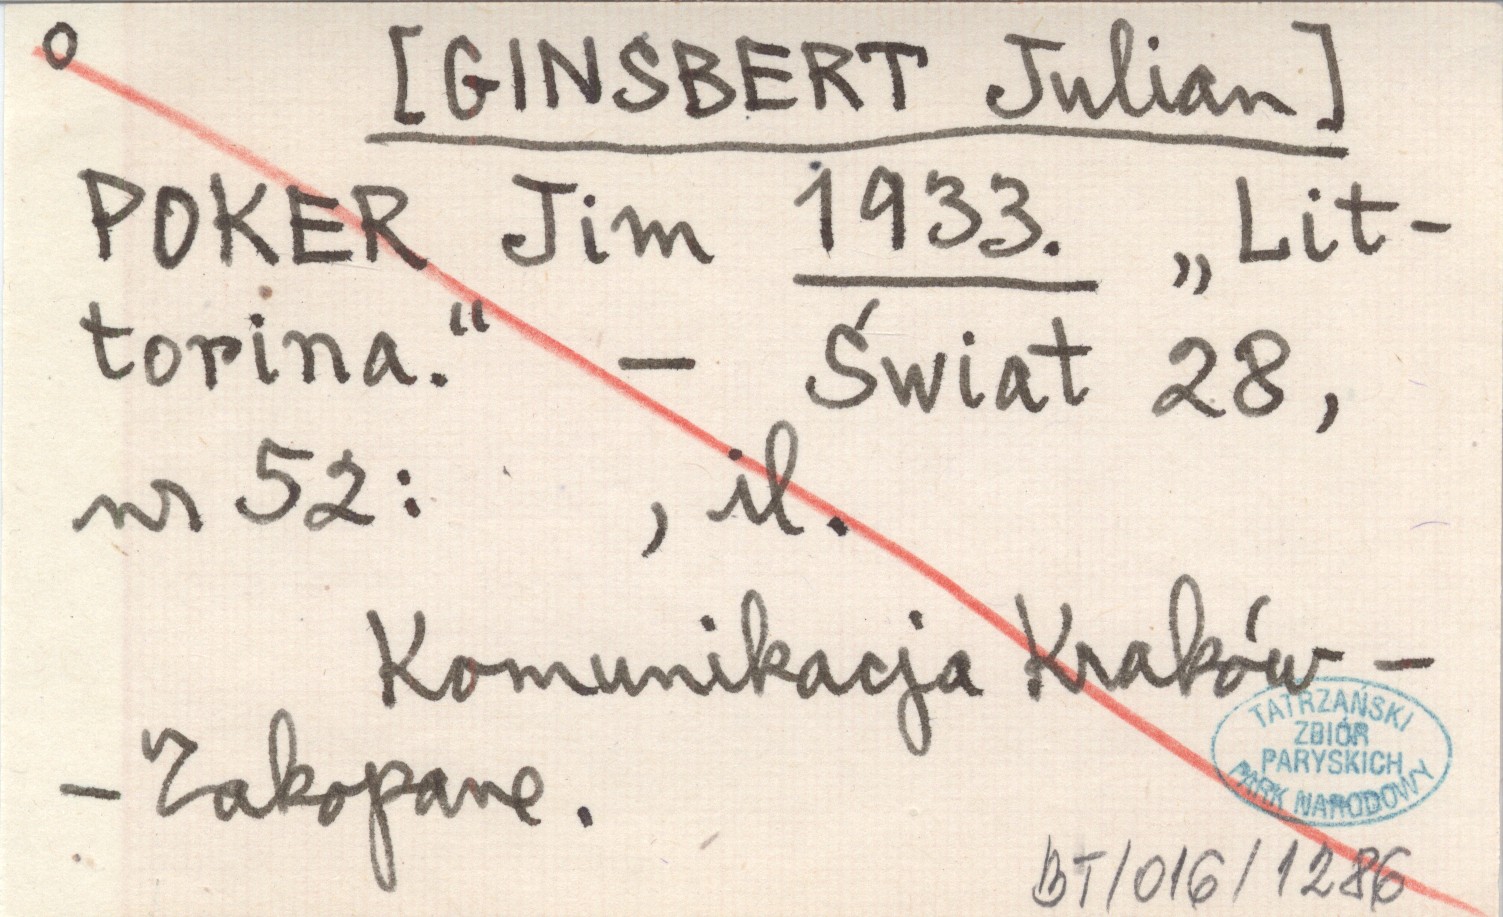 o
[GINSBERT Julian]
POKER Jim 1933. „Lit-
torina.“ – Świat 28,
nr 52: , il.
Komunikacja Kraków –
– Zakopane.
TATRZAŃSKI
ZBIÓR
PARYSKICH
PARK NARODOWY
BT/016/1286